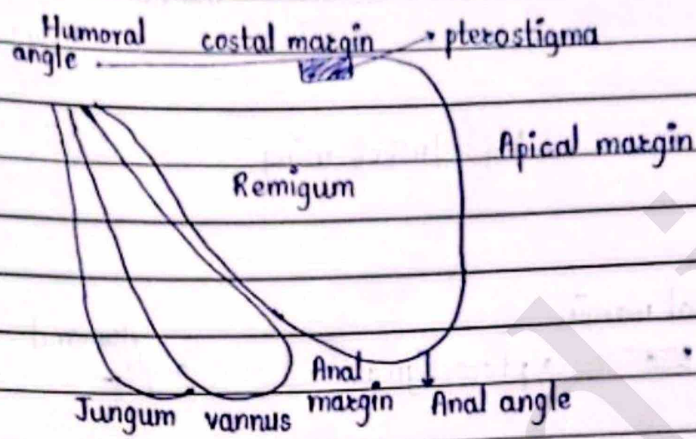 Humoral angle
costal margin
pterostigma
Apical margin
Remigum
Anal margin
Anal angle
Jungum
vannus